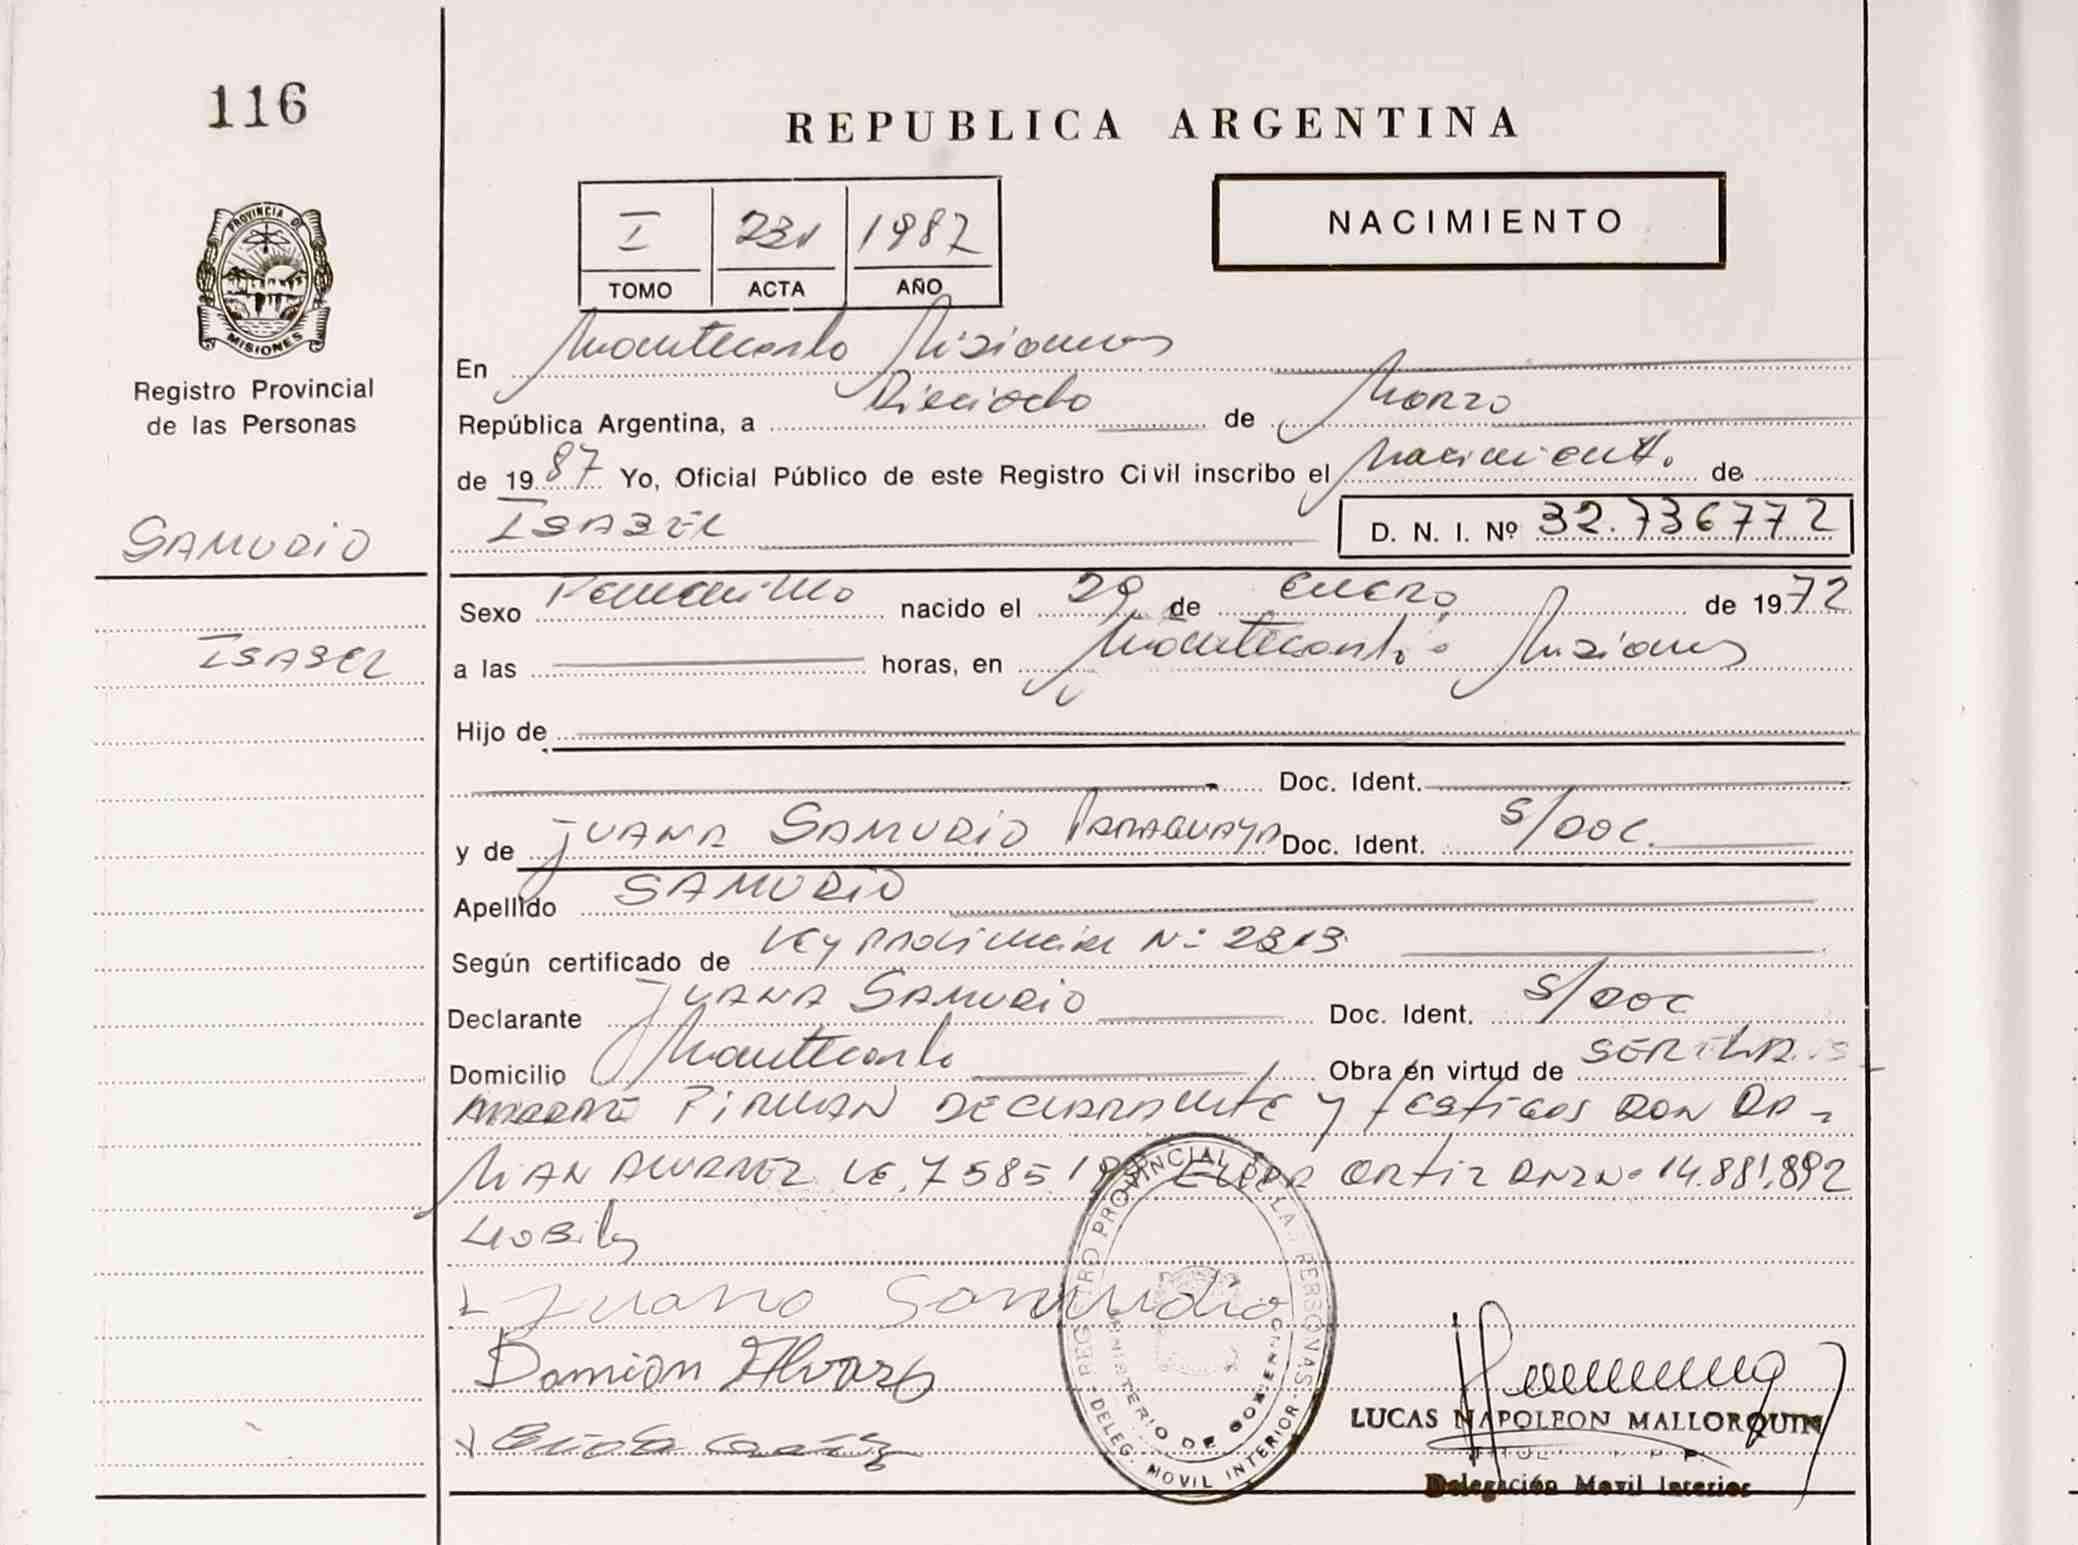 116
REPUBLICA ARGENTINA
PROVINCIA DE
MISIONES
Registro Provincial
de las Personas
I 231 1987
TOMO ACTA AÑO
NACIMIENTO
En Montecarlo Misiones
República Argentina, a Dieciocho de Marzo
de 1987 Yo, Oficial Público de este Registro Civil inscribo el Nacimiento de
ISABEL D. N. I. Nº 32.736772
SAMUDIO
ISABEL
Sexo Femenino nacido el 29 de Enero de 1972
a las horas, en Montecarlo Misiones
Hijo de
Doc. Ident.
y de JUANA SAMUDIO PARAGUAYA Doc. Ident. S/DOC.
Apellido SAMUDIO
Según certificado de LEY PROVINCIAL Nº 2313
Declarante JUANA SAMUDIO Doc. Ident. S/DOC
Domicilio Montecarlo Obra en virtud de SER LA
MADRE FIRMAN DECLARANTE Y TESTIGOS DON DA-
MIAN ALVAREZ LE. 7585.1 ELDA ORTIZ DNI Nº 14.881.892
Juana Samudio
Damian Alvarez
REGISTRO PROVINCIAL DE LAS PERSONAS
MINISTERIO DE GOBIERNO
DELEG. MOVIL INTERIOR
LUCAS NAPOLEON MALLORQUIN
Delegación Movil Interior